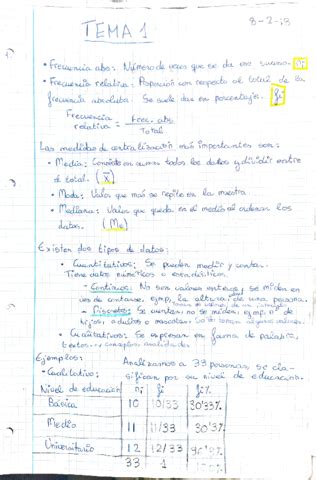 8-2-23
TEMA 1
• Frecuencia abs: Número de veces que se da ese suceso. fi
• Frecuencia relativa: Proporción con respecto al total de la
frecuencia absoluta. Se suele dar en porcentajes. fi
Frecuencia relativa = Frec. abs / Total
Las medidas de centralización más importantes son:
• Media: Consiste en sumar todos los datos y dividir entre
el total. (x̄)
• Moda: Valor que más se repite en la muestra
• Mediana: Valor que queda en el medio al ordenar los
datos. (Me)
Existen dos tipos de datos:
• Cuantitativos: Se pueden medir y contar.
Tiene datos numéricos o estadísticos.
- Continuos: No son valores enteros, se miden en
vez de contarse, ejmp, la altura de una persona.
- Discretos: Se cuentan, no se miden, ejmp, nº de
hijos, adultos o mascotas.
• Cualitativos: Se expresan en forma de palabras,
textos...
Ejemplos:
Analizamos a 33 personas, se cla-
• Cualitativo:
sifican por su nivel de educación.
Nivel de educación ni fi fi%
Básica 10 10/33 30'33%
Medio 11 11/33 30'3%
Universitario 12 12/33
33 1